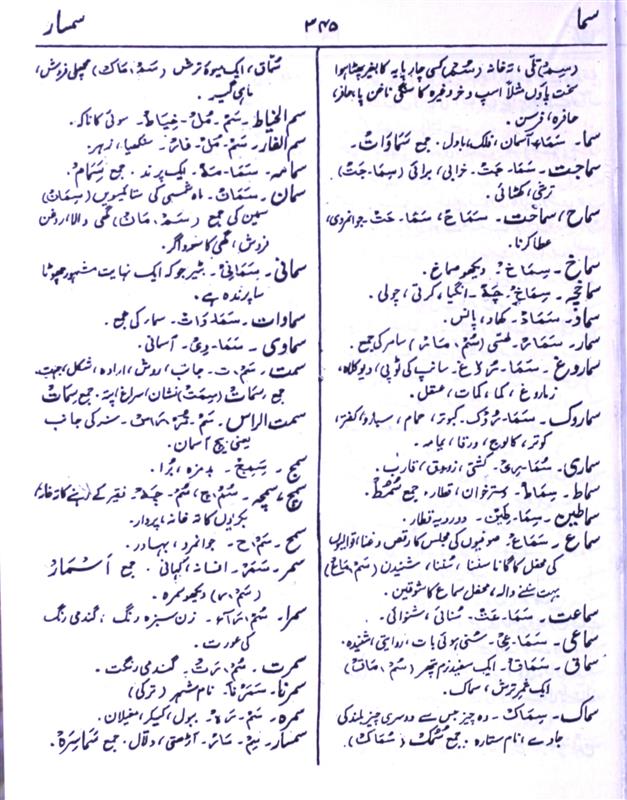 سما ۳۴۵ سمسار
(سِم) تلّی، تہ خانہ (سُم) کسی چار پایہ کا بغیر پھٹا ہوا
سخت پاؤں مثلاً اسپ و خر وغیرہ کا سنگی ناخن پا، حافر،
حافرہ، فرسن۔
سما۔ سَمَاء آسمان، فلک، بادل۔ جمع سَمَاوَات۔
سماجت۔ سَمَا۔جَتْ۔ خرابی، برائی (سِمَا۔جَت)
ترشی، کھٹائی۔
سماح، سماحت۔ سَمَاحْ، سَمَا۔حَتْ۔ جوانمردی،
عطا کرنا۔
سماخ۔ سِمَاخْ۔ دیکھو صماخ۔
سماخچہ۔ سِمَاخْ۔چَہْ۔ انگیا، کرتی، چولی۔
سماد۔ سَمَادْ۔ کھاد، پانس۔
سمار۔ سَمَارْ۔ (سُمْ۔مَارْ) سامر کی جمع۔
سماروغ۔ سَمَا۔رُوغْ۔ سانپ کی ٹوپی، دیو کلاہ،
زماروغ، کما، کمات، عسقل۔
سماروک۔ سَمَا۔رُوْک۔ کبوتر، حمام،
کوتر، کالوج، ورقا، یمامہ۔
سماری۔ سُمَا۔رِیْ۔ کشتی، زورق، قارب۔
سماط۔ سِمَاطْ۔ دسترخوان، قطار۔ جمع سُمُط۔
سماطین۔ سِمَا۔طَیْن۔ دو رویہ قطار۔
سماع۔ سَمَاعْ۔ صوفیوں کی مجلس کا رقص و غنا، قوالیوں
کی محفل کا گانا سننا، سُننا، شنیدن (سَمْ۔مَاعْ)
بہت سننے والا، محفل سماع کا شوقین۔
سماعت۔ سَمَا۔عَتْ۔ سُنائی، شنوائی۔
سماعی۔ سَمَا۔عِیْ۔ سُنی ہوئی بات، روایتی، شنیدہ۔
سماق۔ سَمَاقْ۔ ایک سفید نرم پتھر (سُمْ۔مَاقْ)
ایک ثمر ترش، سماک۔
سماک۔ سِمَاک۔ وہ چیز جس سے دوسری چیز بلند کی
جاوے، نام ستارہ۔ جمع سُمُک (سَمَاک)
سُمّاق، ایک میوہ ترش (سَمْ۔مَاک) مچھلی فروش،
ماہی گیر۔
سم الخیاط۔ سَمْ۔مُلْ۔خِیَاطْ۔ سوئی کا ناکہ۔
سم الفار۔ سَمْ۔مُلْ۔فَارْ۔ سنکھیا، زہر۔
سمامہ۔ سَمَا۔مَہْ۔ ایک پرند۔ جمع سِمَام۔
سمان۔ سَمَانْ۔ ماہ شمسی کی ستائیسویں (سِمَان)
سمین کی جمع (سَمْ۔مَان) گھی والا، روغن
فروش، گھی کا سوداگر۔
سمانی۔ سَمَانِیْ۔ بٹیر جو کہ ایک نہایت مشہور چھوٹا
سا پرندہ ہے۔
سماوات۔ سَمَا۔وَاتْ۔ سمار کی جمع۔
سماوی۔ سَمَا۔وِیْ۔ آسمانی۔
سمت۔ سَمْ، ت۔ جانب، روش، ارادہ، شکل، جہت۔
جمع سِمَات (سِمَتْ) نشان، سراغ، پتہ۔ جمع سِمَات
سمت الراس۔ سَمْ۔تُرْ۔رَاس۔ سر کی جانب
یعنی بیچ آسمان۔
سمج۔ سَمِجْ۔ بدمزہ، بُرا۔
سمج، سمجہ۔ سُمْ، ج، سُمْ۔جَہْ۔ فقیر کے رہنے کا تہ خانہ،
بکریوں کا تہ خانہ، پروار۔
سمح۔ سَمْ، ح۔ جوانمرد، بہادر۔
سمر۔ سَمَرْ۔ افسانہ، کہانی۔ جمع اَسْمَارْ
(سَمْ، ر) دیکھو سمرہ۔
سمرا۔ سَمْ، رَاء۔ زن سبزہ رنگ، گندمی رنگ
کی عورت۔
سمرت۔ سُمْ، رَتْ۔ گندمی رنگت۔
سمرنا۔ سَمَرْنَا۔ نام شہر (ترکی)
سمرہ۔ سَمْ، رَہْ۔ ببول، کیکر، مغیلان۔
سمسار۔ سِمْ۔سَارْ۔ آڑھتی، دلال۔ جمع سَمَاسِرَہ۔